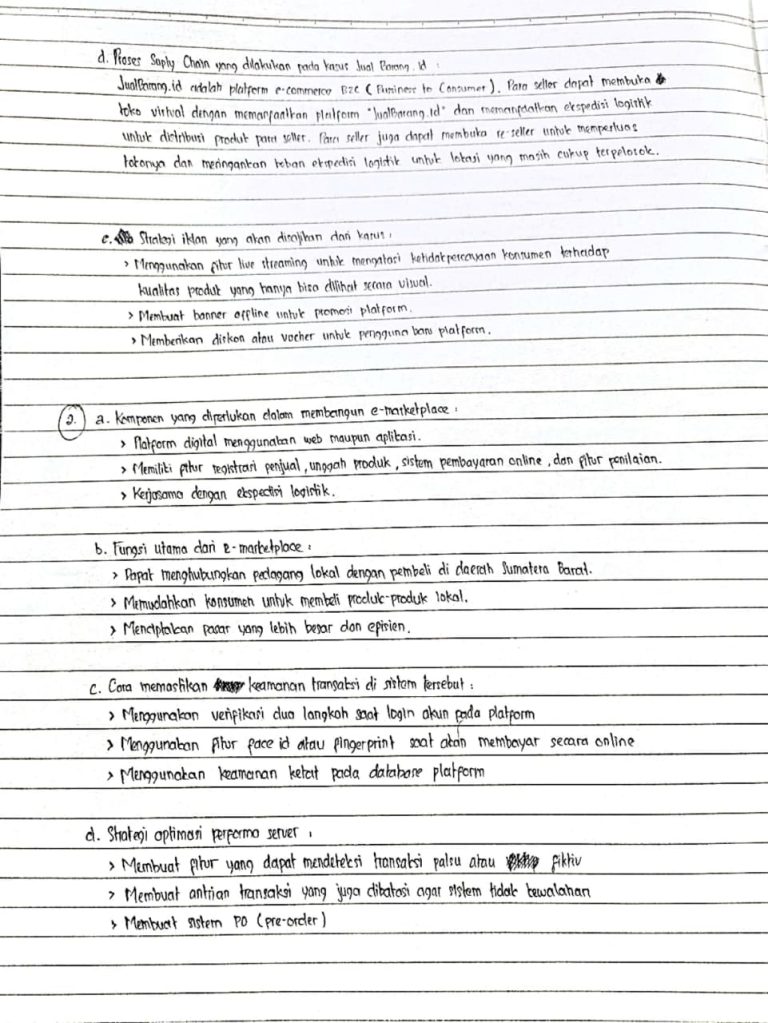 d. Proses Saply Chain yang dilakukan pada kasus Jual Barang.id :
JualBarang.id adalah platform e-commerce B2C (Business to Consumer). Para seller dapat membuka
toko virtual dengan memanfaatkan platform "JualBarang.id" dan memanfaatkan ekspedisi logistik
untuk distribusi produk para seller. Para seller juga dapat membuka re-seller untuk memperluas
tokonya dan meringankan beban ekspedisi logistik untuk lokasi yang masih cukup terpelosok.
e. Strategi iklan yang akan disajikan dari kasus :
> Menggunakan fitur live streaming untuk mengatasi ketidakpercayaan konsumen terhadap
kualitas produk yang hanya bisa dilihat secara visual.
> Membuat banner offline untuk promosi platform.
> Memberikan diskon atau vocher untuk pengguna baru platform.
2. a. Komponen yang diperlukan dalam membangun e-marketplace :
> Platform digital menggunakan web maupun aplikasi.
> Memiliki fitur registrasi penjual, unggah produk, sistem pembayaran online, dan fitur penilaian.
> Kerjasama dengan ekspedisi logistik.
b. Fungsi utama dari e-marketplace :
> Dapat menghubungkan pedagang lokal dengan pembeli di daerah Sumatera Barat.
> Memudahkan konsumen untuk membeli produk-produk lokal.
> Menciptakan pasar yang lebih besar dan efisien.
c. Cara memastikan keamanan transaksi di sistem tersebut :
> Menggunakan verifikasi dua langkah saat login akun pada platform
> Menggunakan fitur face id atau fingerprint saat akan membayar secara online
> Menggunakan keamanan ketat pada database platform
d. Strategi optimasi performa server :
> Membuat fitur yang dapat mendeteksi transaksi palsu atau fiktiv
> Membuat antrian transaksi yang juga dibatasi agar sistem tidak kewalahan
> Membuat sistem PO (pre-order)